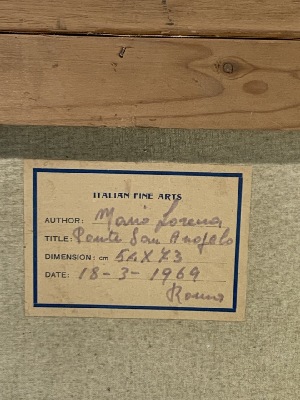 ITALIAN FINE ARTS
AUTHOR: Mario Lorena
TITLE: Ponte San Angelo
DIMENSION: cm 54X73
DATE: 18-3-1969
Roma